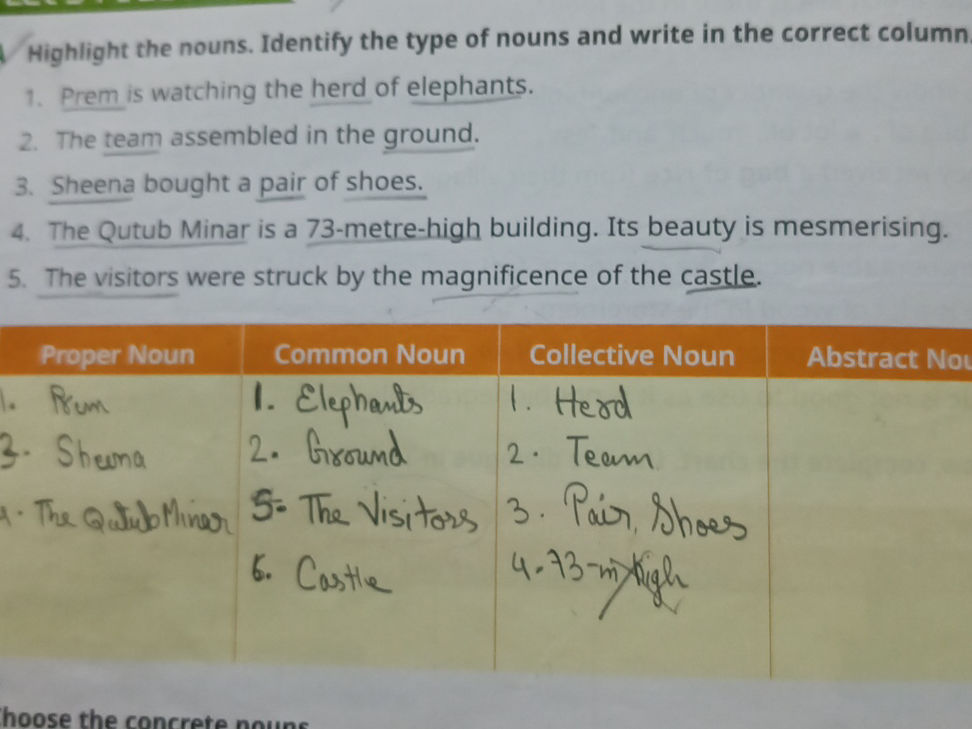 Highlight the nouns. Identify the type of nouns and write in the correct column.
1. Prem is watching the herd of elephants.
2. The team assembled in the ground.
3. Sheena bought a pair of shoes.
4. The Qutub Minar is a 73-metre-high building. Its beauty is mesmerising.
5. The visitors were struck by the magnificence of the castle.
Proper Noun Common Noun Collective Noun Abstract Nou
1. Prem 1. Elephants 1. Herd
3. Sheena 2. Ground 2. Team
4. The Qutub Minar 5. The Visitors 3. Pair, Shoes
6. Castle 4. 73-m high
hoose the concrete nouns